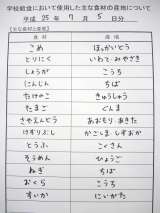 学校給食において使用した主な食材の産地について
平成 25 年 7月 5 日分
【主な食材の産地】
食材 産地
こめ ほっかいどう
とりにく いわて・みやざき
しょうが こうち
にんじん ちば
たけのこ きゅうしゅう
たまご ぐんま
さやえんどう あおもり・あきた
けずりぶし かごしま・しずおか
とうふ こくさん
そうめん ひょうご
ねぎ ちば
おくら こうち
すいか にいがた